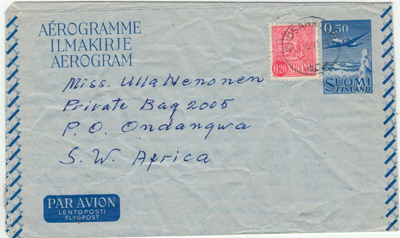 AÉROGRAMME
ILMAKIRJE
AEROGRAM
0,50
SUOMI
FINLAND
0,20
Miss. Ulla Nenonen
Private Bag 2005
P.O. Ondangwa
S.W. Africa
PAR AVION
LENTOPOSTI
FLYGPOST